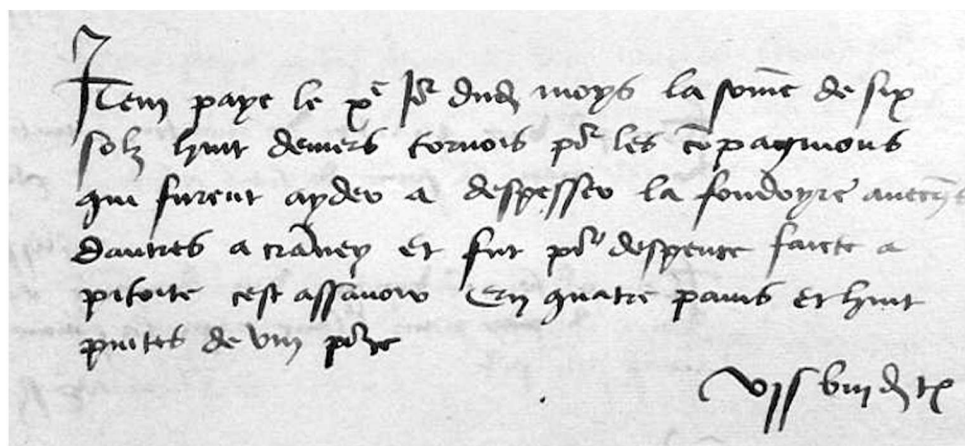 Item paye le xe Jor dud moys la some de six
solz huit deniers tornois por les copagnons
qui furent ayder a despesser la fondoyre avec
dautres a et fut por despence faicte a
pitoite cest assavoir En quatre pains et huit
pintes de vin por ce
vi s viii d t